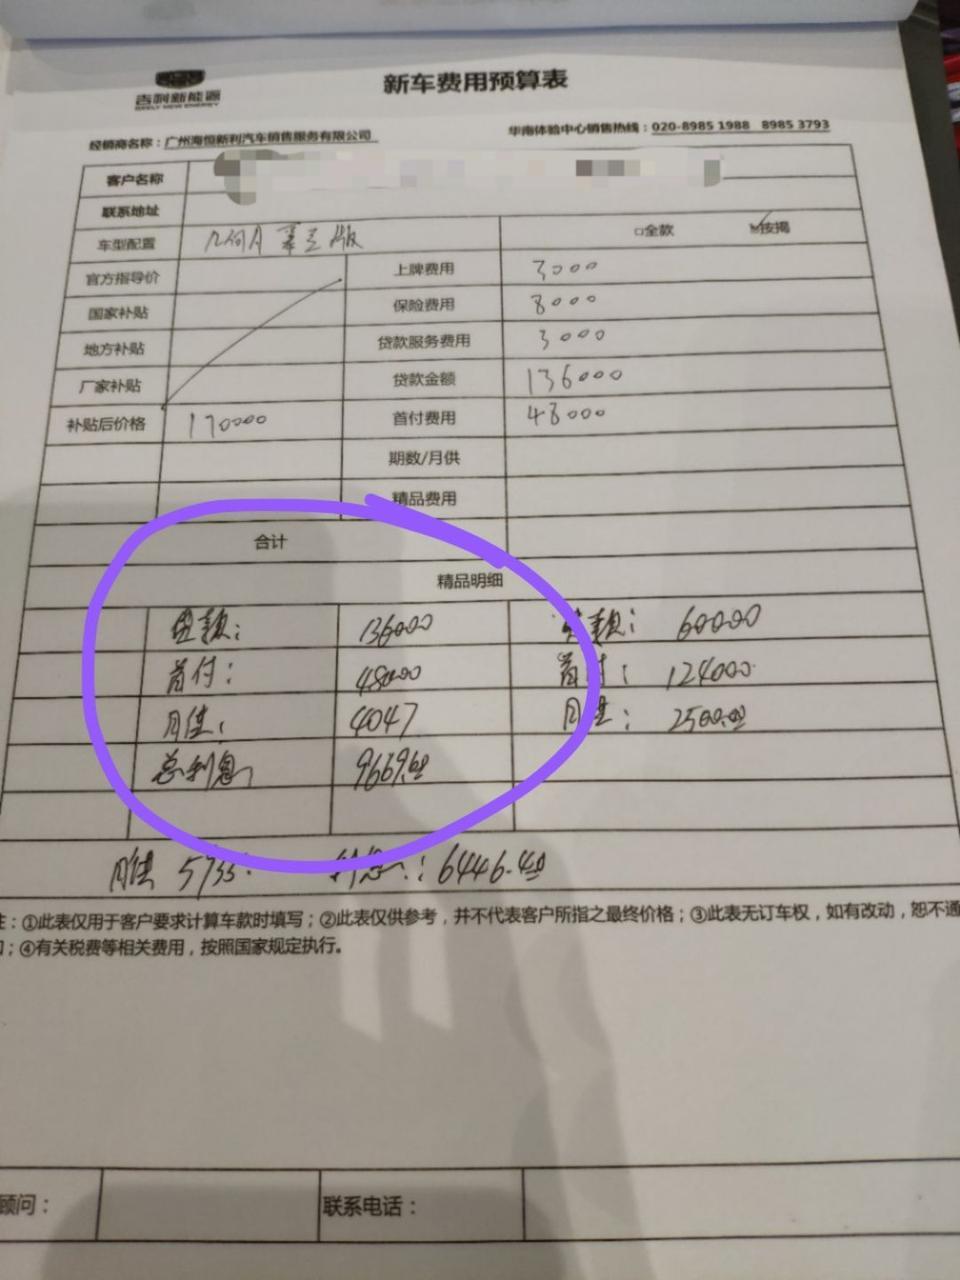 新车费用预算表
吉利新能源
GEELY NEW ENERGY
经销商名称：广州海恒新利汽车销售服务有限公司 华南体验中心销售热线：020-8985 1988 8985 3793
客户名称
联系地址
车型配置 几何A □全款 ☑按揭
官方指导价 上牌费用 3000
国家补贴 保险费用 8000
地方补贴 贷款服务费用 3000
厂家补贴 贷款金额 136000
补贴后价格 170000 首付费用 48000
期数/月供
精品费用
合计
精品明细
贷款： 136000 贷款： 60000
首付： 48000 首付： 124000
月供： 4047 月供： 2500.00
总利息 9669.60
月供 5735. 利息：6446.40
注：①此表仅用于客户要求计算车款时填写；②此表仅供参考，并不代表客户所指之最终价格；③此表无订车权，如有改动，恕不通
知；④有关税费等相关费用，按照国家规定执行。
顾问： 联系电话：